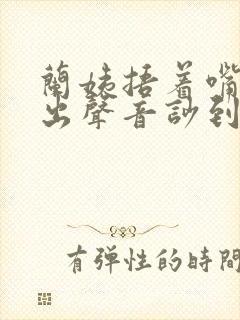 蘭姨捂着嘴
出聲音訬到
有弹性的時間